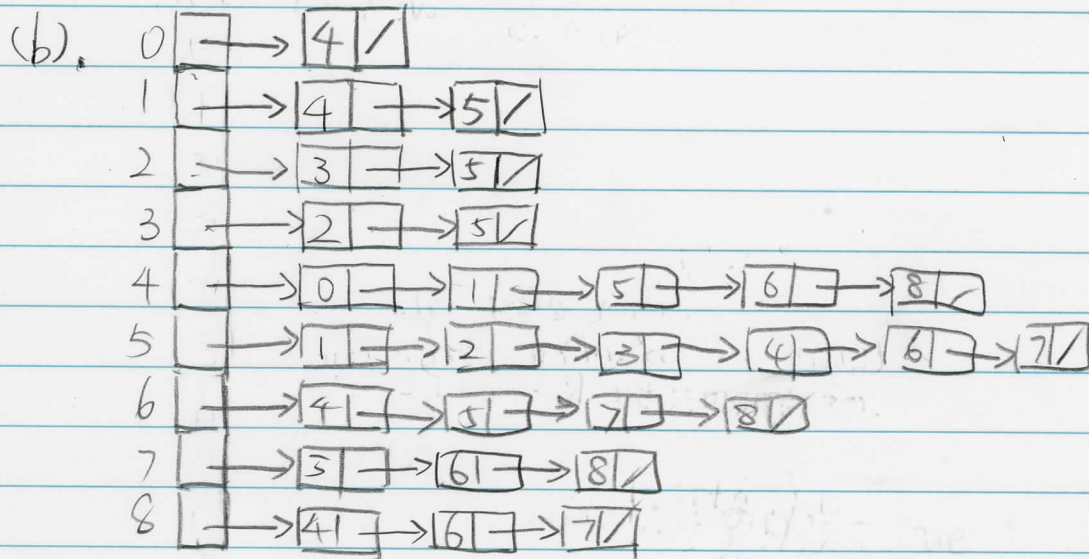 (b). 0 → 4 /
1 → 4 → 5 /
2 → 3 → 5 /
3 → 2 → 5 /
4 → 0 → 1 → 5 → 6 → 8 /
5 → 1 → 2 → 3 → 4 → 6 → 7 /
6 → 4 → 5 → 7 → 8 /
7 → 5 → 6 → 8 /
8 → 4 → 6 → 7 /